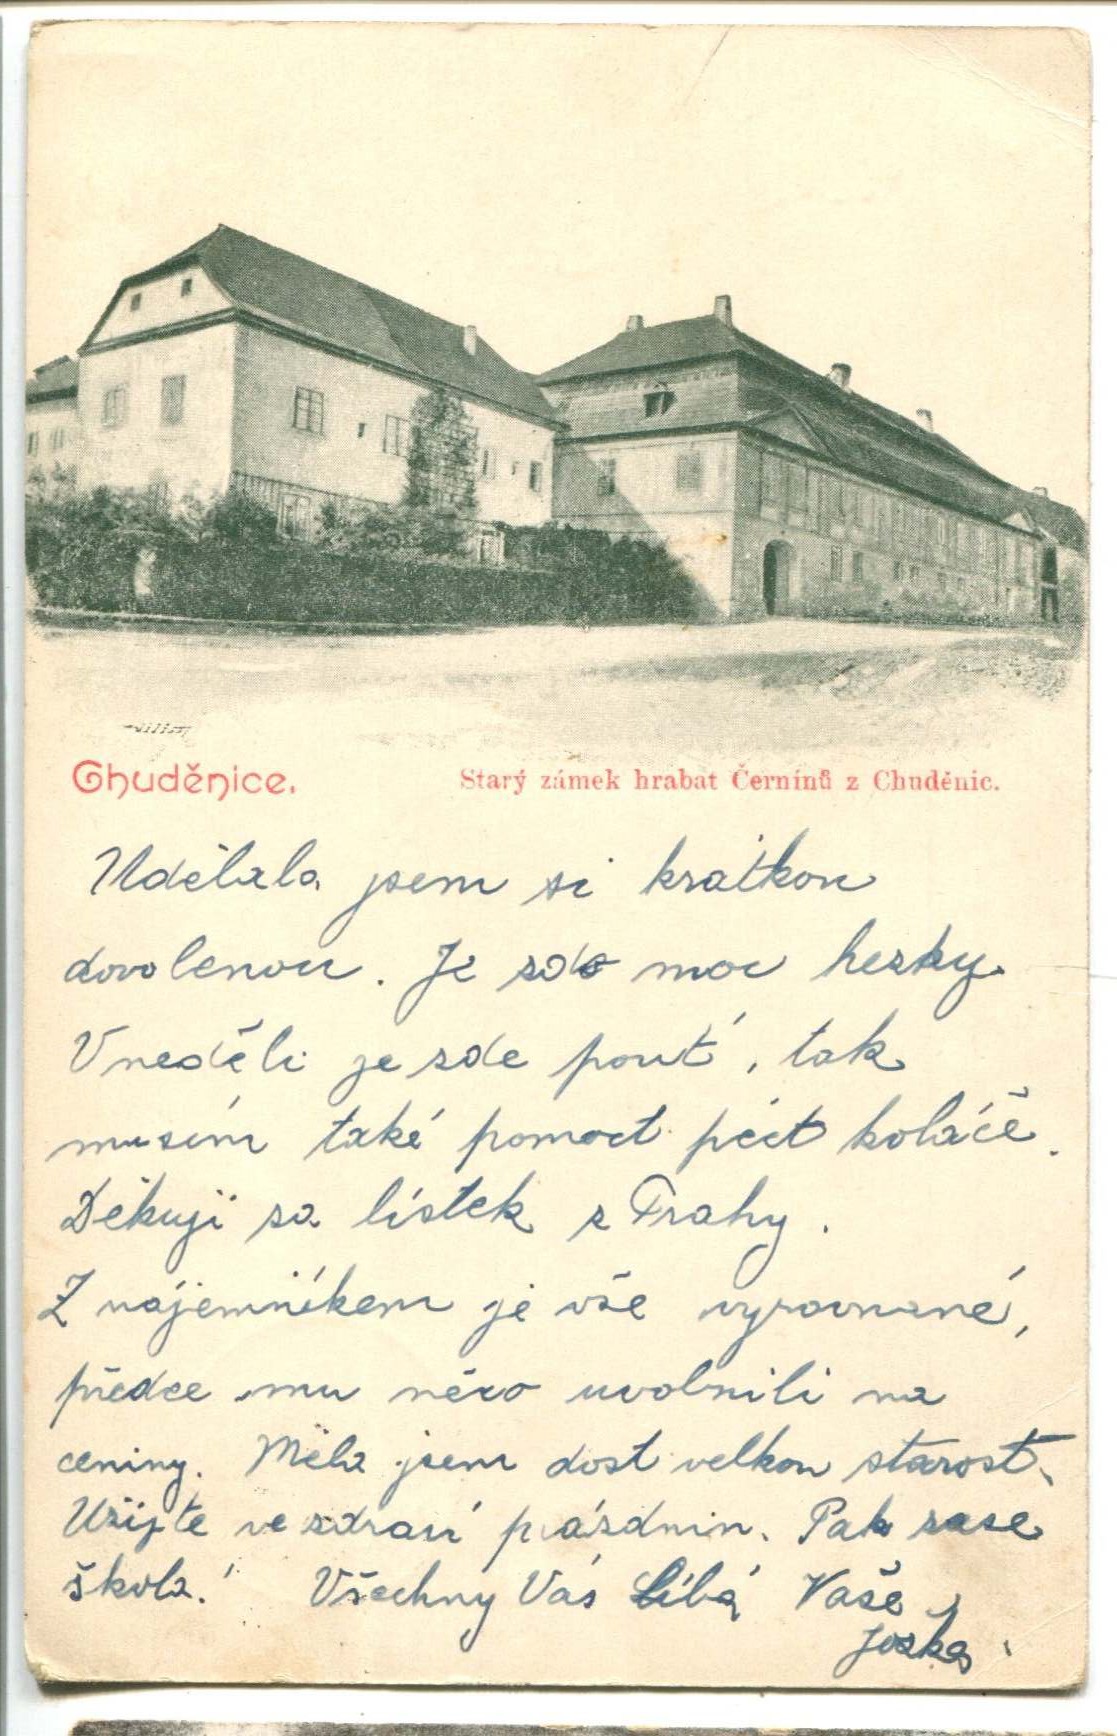 Chuděnice.
Starý zámek hrabat Černínů z Chuděnic.
Udělala jsem si krátkou
dovolenou. Je zde moc hezky
V neděli je zde pouť, tak
musím také pomoct péct koláče.
Děkuji za lístek z Prahy.
Z nájemníkem je vše vyrovnané,
předce mu něco uvolnili na
ceniny. Měla jsem dost velkou starost.
Užijte ve zdraví prázdnin. Pak zase
škola! Všechny Vás Líbá Vaše